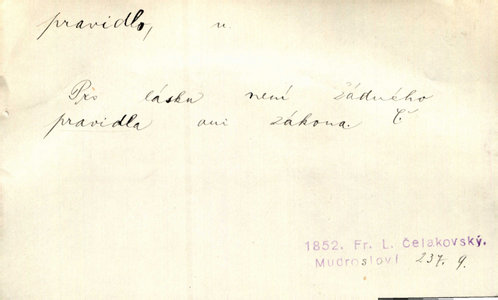 pravidlo, n.
Pro lásku není žádného
pravidla ani zákona. Č.
1852. Fr. L. Čelakovský.
Mudrosloví 237. 9.